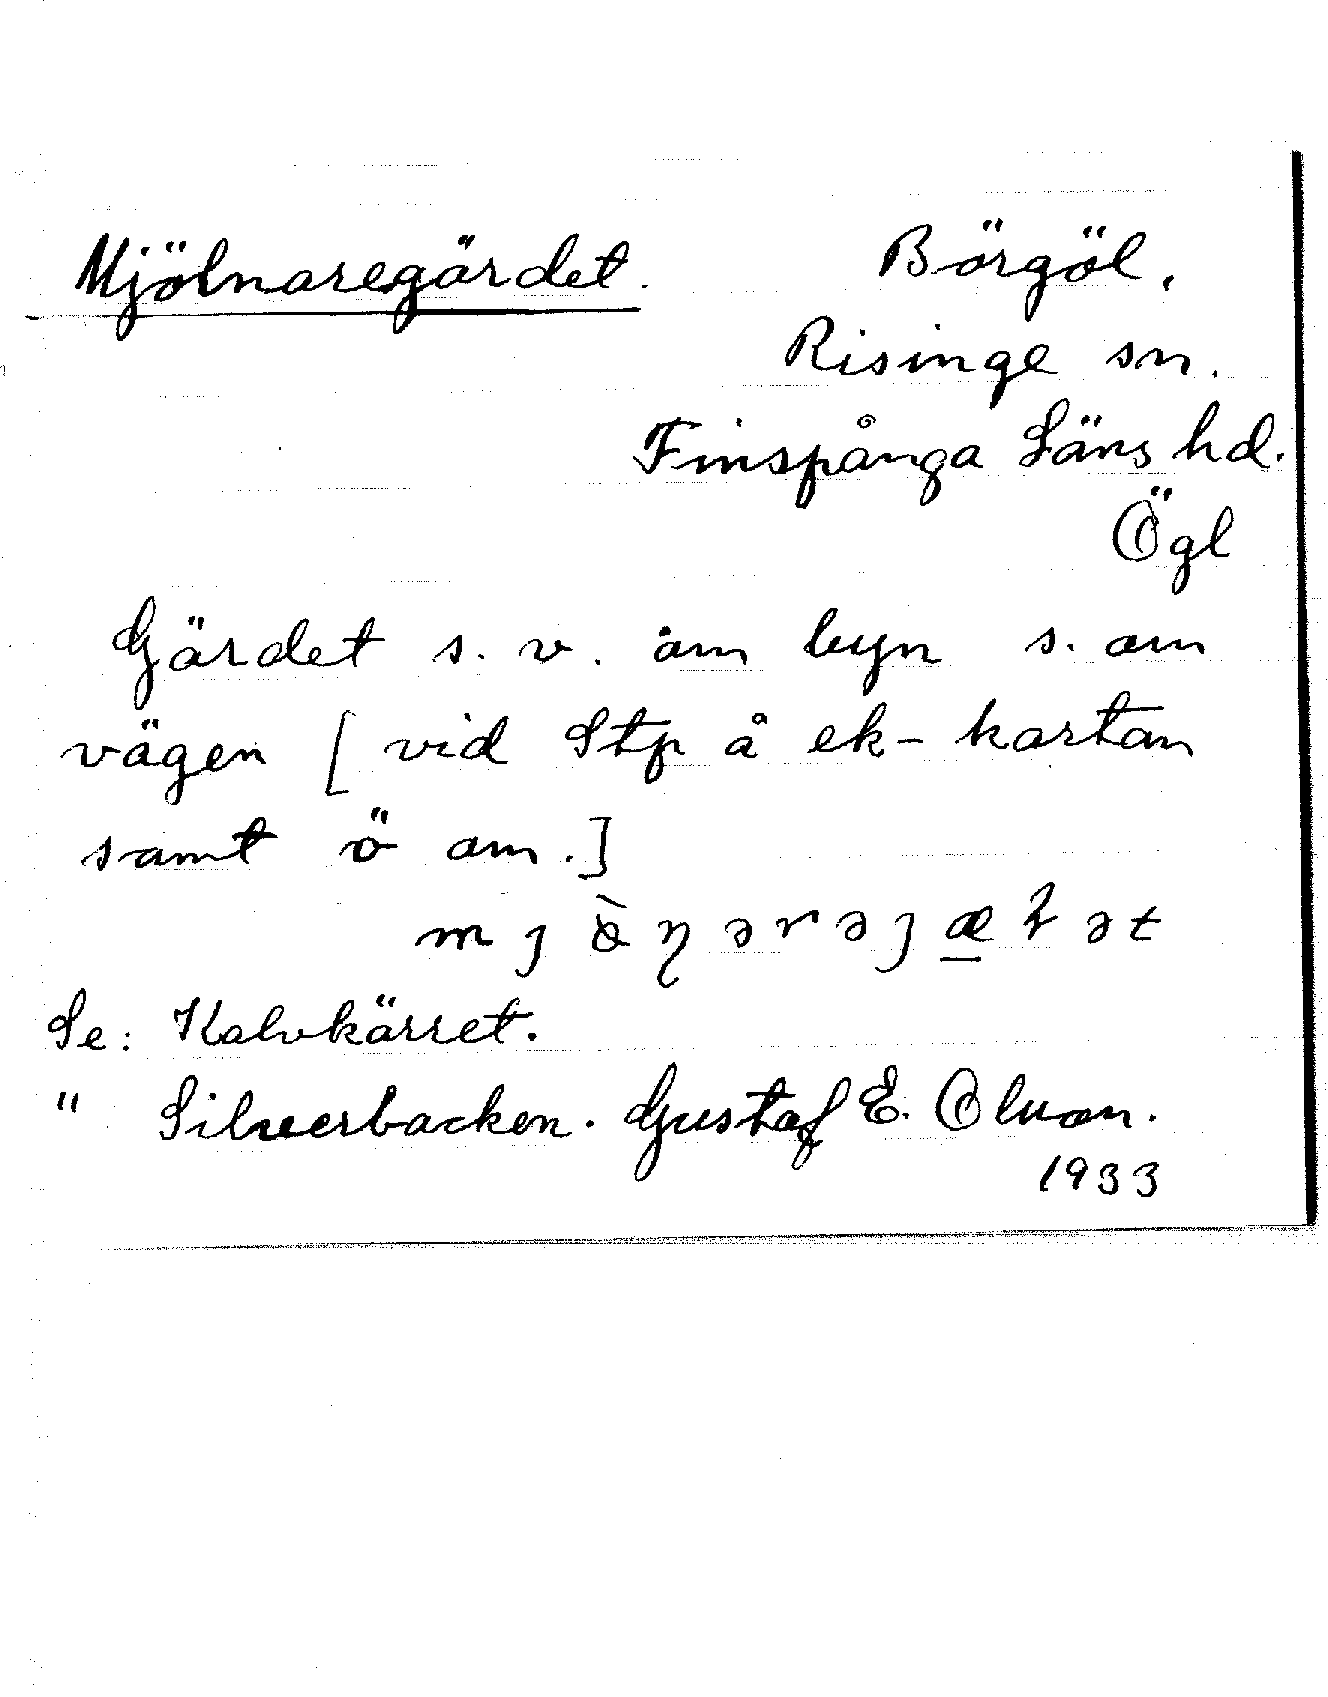 Mjölnaregärdet. Börgöl,
Risinge sn.
Finspånga Läns hd.
Ögl
Gärdet s. v. om byn s. om
vägen [ vid Stp å ek-kartan
samt ö om.]
Se: Kalvkärret.
" Silverbacken. Gustaf E.
1933